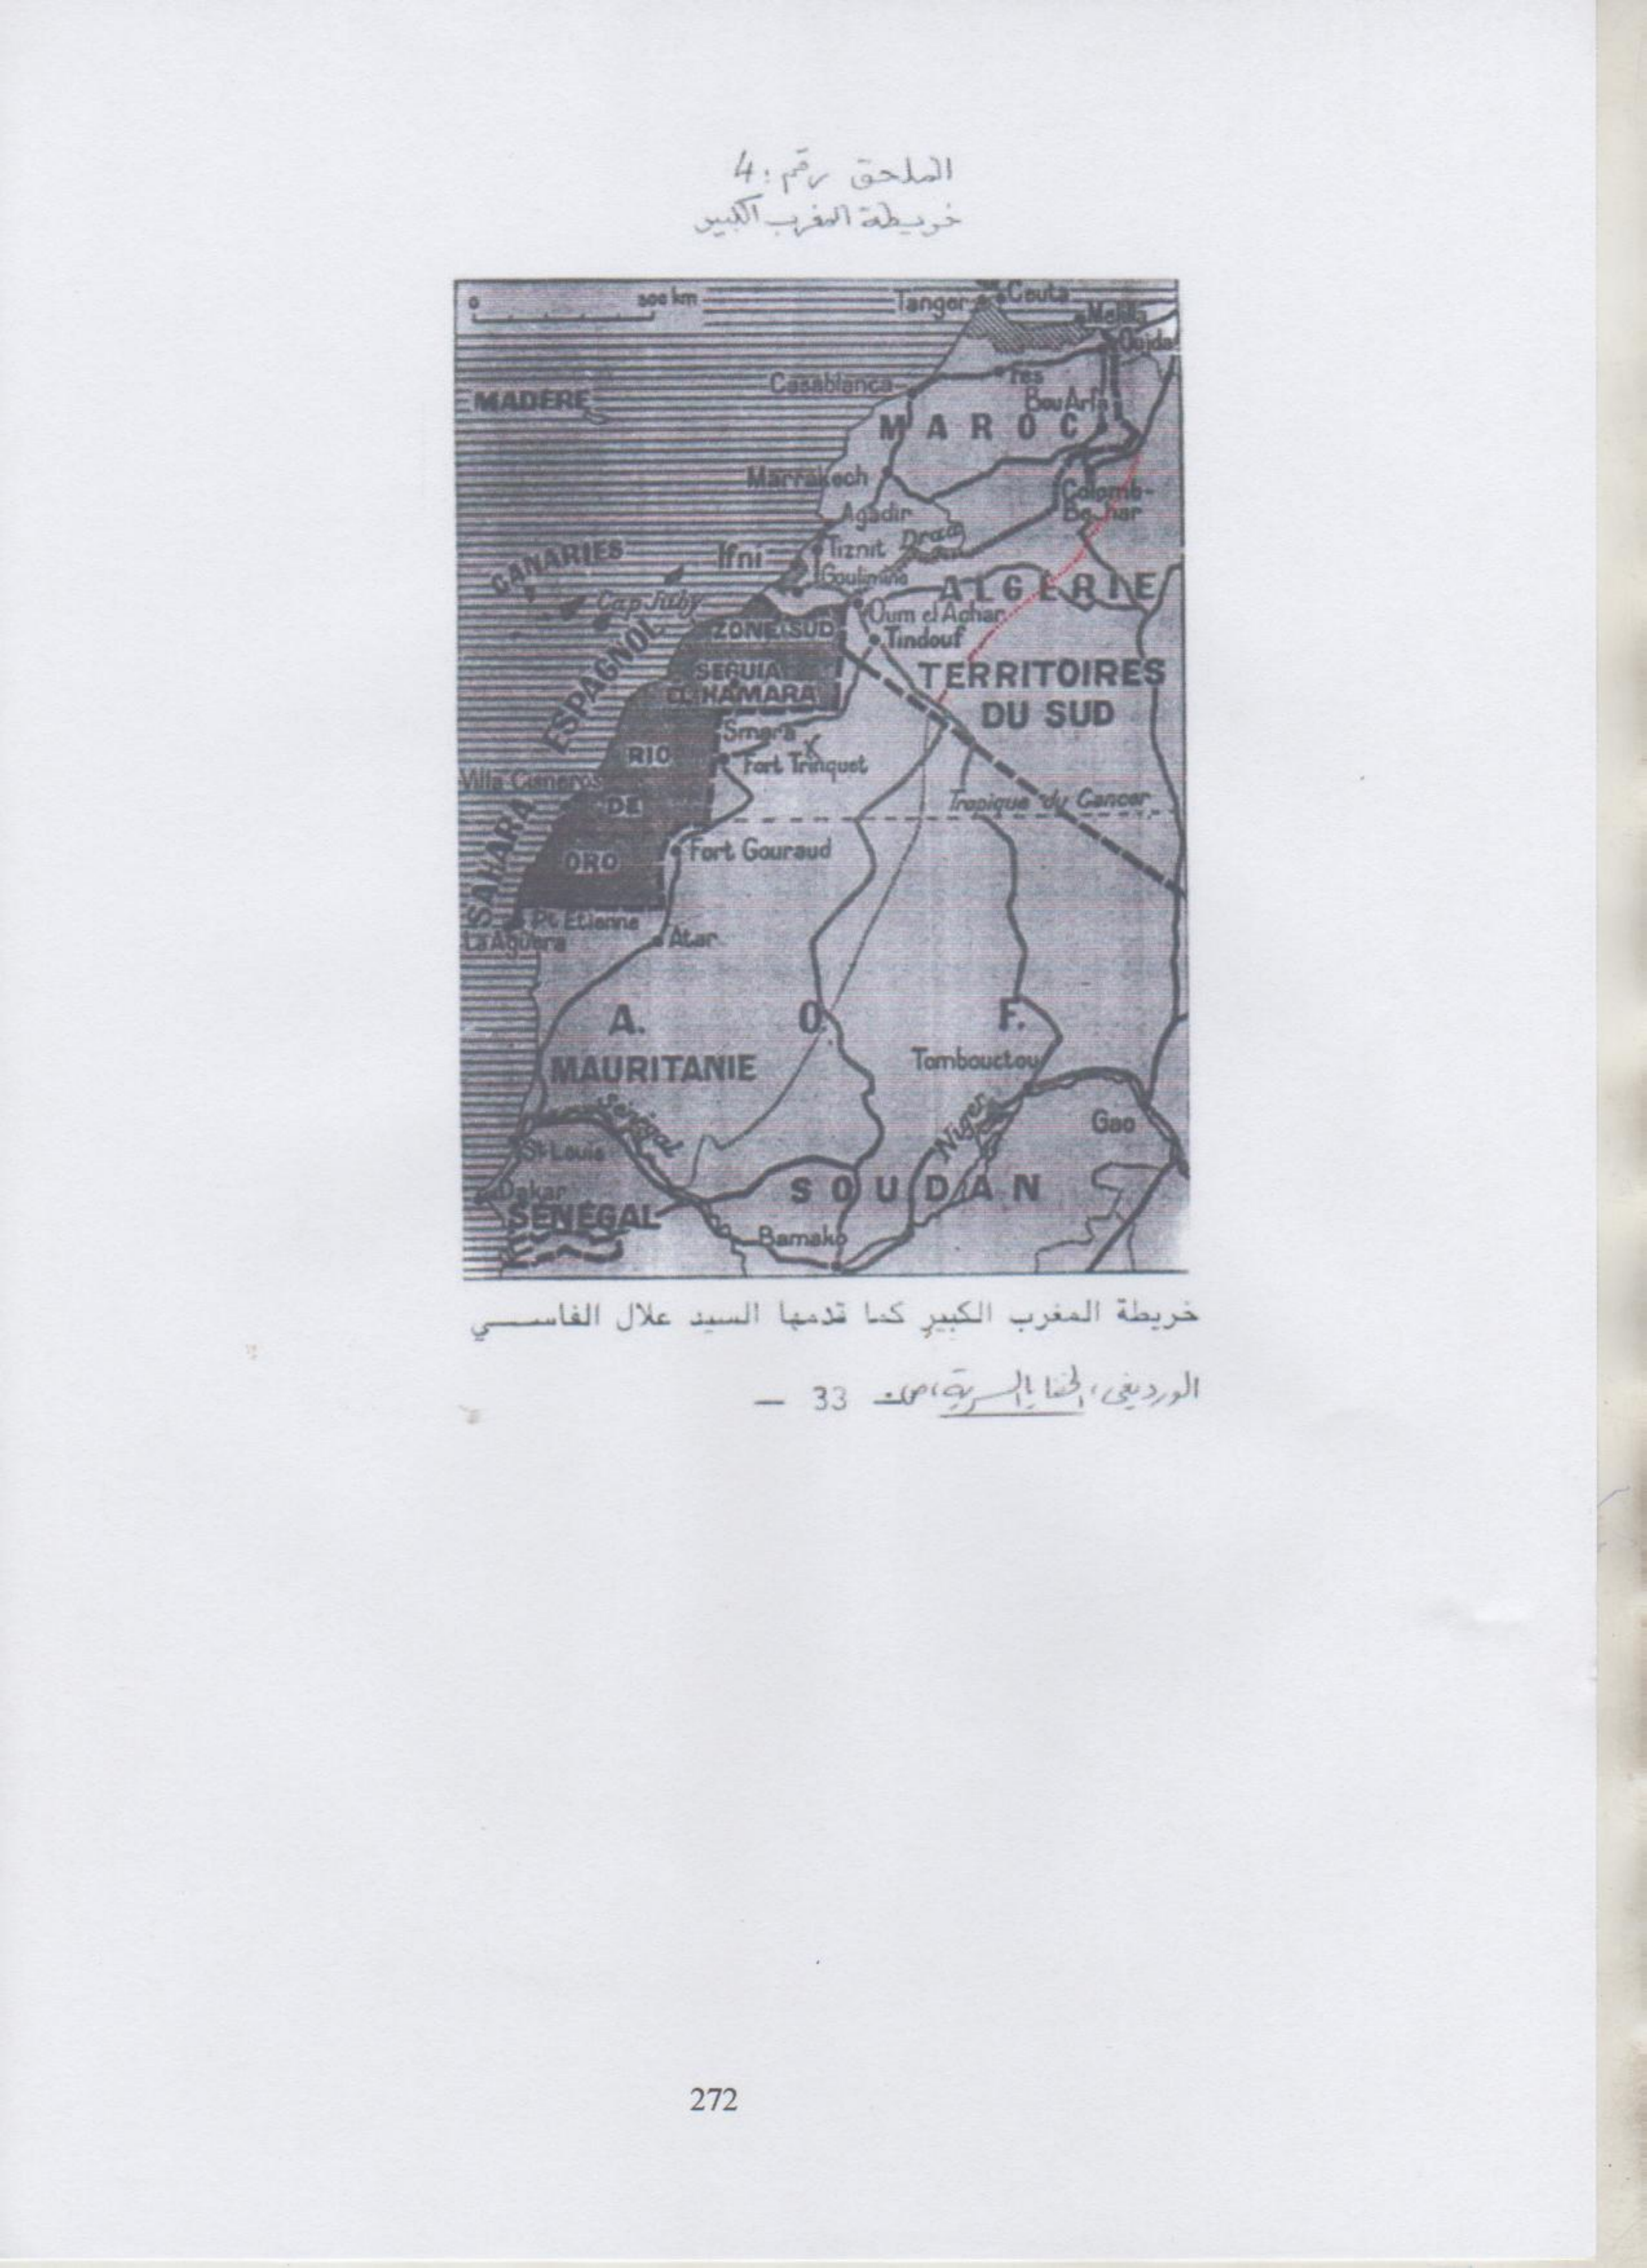 الملحق رقم: 4
خريطة المغرب الكبير
0 500 km
Tanger
Ceuta
Melilla
Oujda
Casablanca
Fes
Bou Arfa
MADÈRE
MAROC
Marrakech
Colomb-
Bechar
Agadir
CANARIES
Ifni
Tiznit
Draa
Goulimine
ALGÉRIE
Cap Juby
Oum el Achar
ZONE SUD
Tindouf
SEGUIA
EL HAMARA
TERRITOIRES
DU SUD
SAHARA ESPAGNOL
Smara
RIO
Fort Trinquet
Villa Cisneros
DE
Tropique du Cancer
ORO
Fort Gouraud
Pt Etienne
La Aguera
Atar
A. O. F.
MAURITANIE
Tombouctou
Sénégal
Niger
Gao
St Louis
Dakar
SOUDAN
SÉNÉGAL
Bamako
خريطة المغرب الكبير كما قدمها السيد علال الفاسي
الورديغي، الخفايا السرية، ص 33 –
272